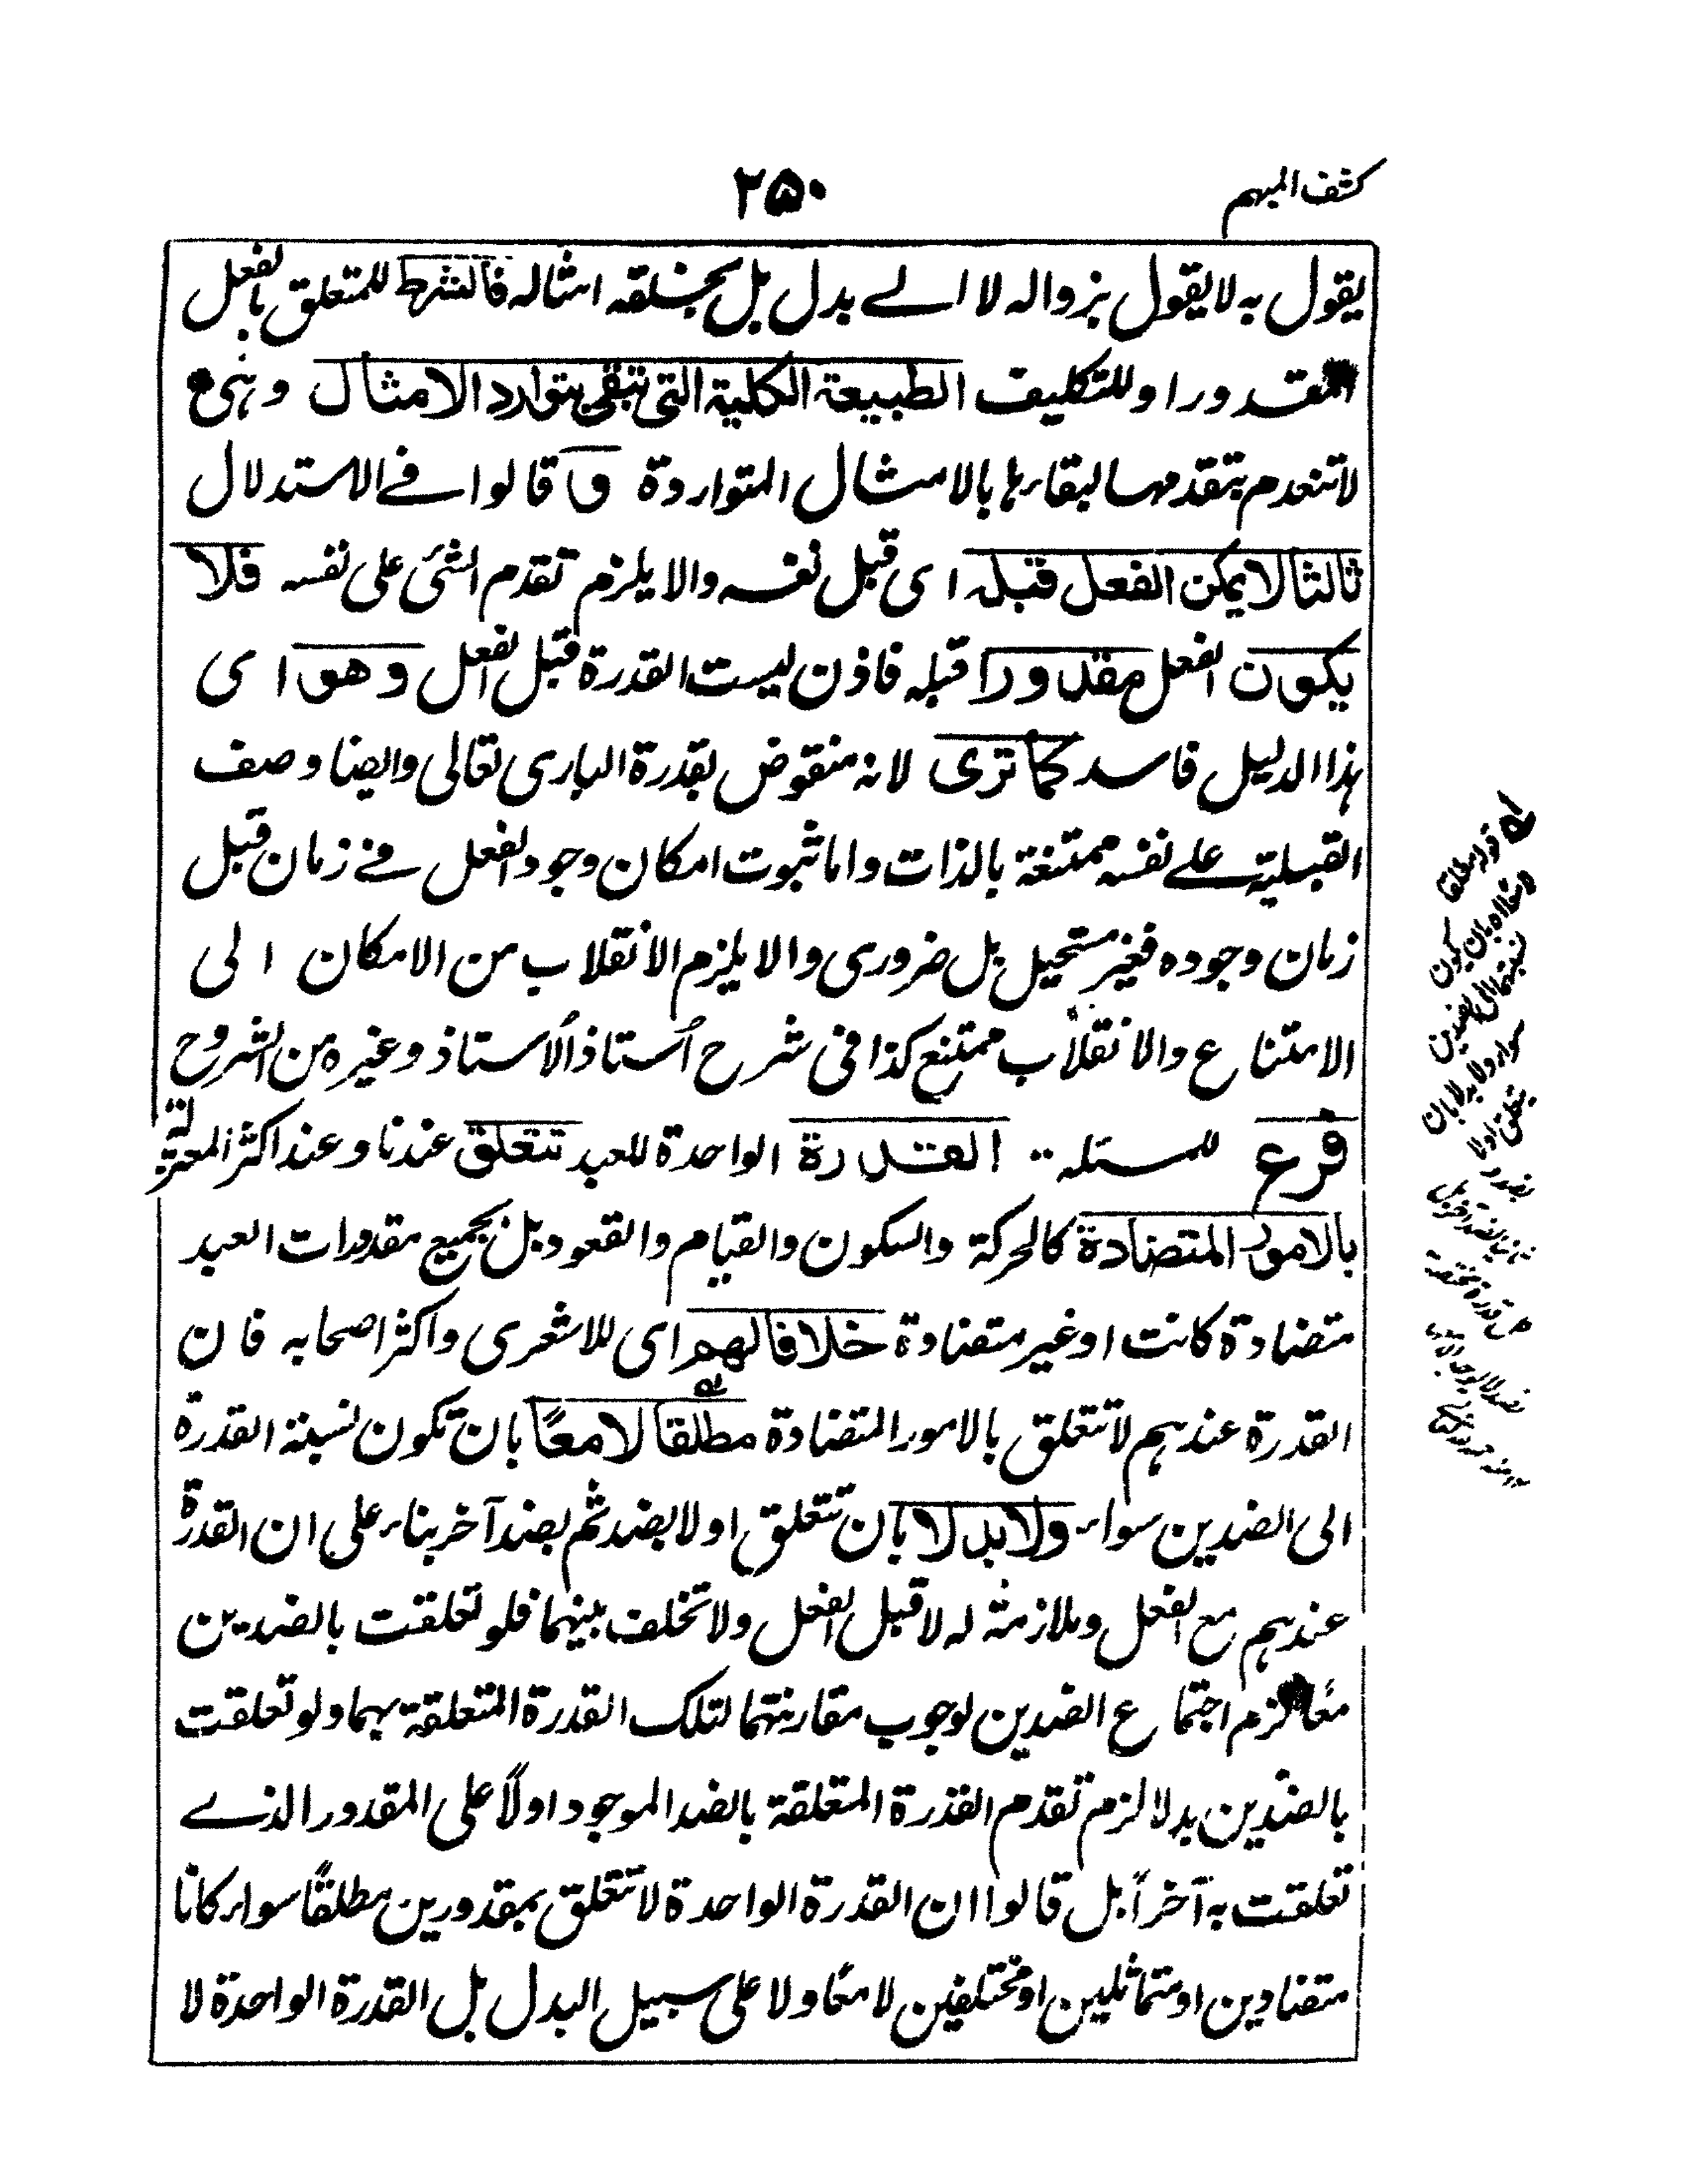 كشف المبهم
۲۵۰
يقول به لا يقول بزواله لا الے بدل بل يخلقه امثاله فالشرط للمتعلق بالفعل
المقدور او للتكليف الطبيعة الكلية التى تبقى بتوارد الامثال وهى
لا تنعدم بتقدمها لبقائها بالامثال المتواردة و قالوا فے الاستدلال
ثالثا لا يمكن الفعل قبله اى قبل نفسه والا يلزم تقدم الشئ على نفسه فلا
يكون الفعل مقدورا قبله فاذن ليست القدرة قبل الفعل وهو اى
هذا الدليل فاسد كما ترى لانه منقوض بقدرة البارى تعالى وايضا وصف
القبلية علے نفسه ممتنعة بالذات واما ثبوت امكان وجود الفعل فے زمان قبل
زمان وجوده فغير مستحيل بل ضرورى والا يلزم الانقلاب من الامكان الى
الامتناع والانقلاب ممتنع كذا فى شرح اُستاذ الاُستاذ وغيره من الشروح
فرع للمسئلة القدرة الواحدة للعبد تتعلق عندنا وعند اكثر المعتزلة
بالامور المتضادة كالحركة والسكون والقيام والقعود بل بجميع مقدورات العبد
متضادة كانت او غير متضادة خلافا لهم اى للاشعرى واكثر اصحابه فان
القدرة عندهم لا تتعلق بالامور المتضادة مطلقا لا معًا بان تكون نسبة القدرة
الى الضدين سواء ولا بدلا بان تتعلق اولا بضد ثم بضد آخر بناء على ان القدرة
عندهم مع الفعل وملازمة له لا قبل الفعل ولا تخلف بينهما فلو تعلقت بالضدين
معًا لزم اجتماع الضدين لوجوب مقارنتهما لتلك القدرة المتعلقة بهما ولو تعلقت
بالضدين بدلا لزم تقدم القدرة المتعلقة بالضد الموجود اولاً على المقدور الذے
تعلقت به آخراً بل قالوا ان القدرة الواحدة لا تتعلق بمقدورين مطلقًا سواء كانا
متضادين او متماثلين او مختلفين لا معًا ولا على سبيل البدل بل القدرة الواحدة لا
قوله مطلقا
بان يكون
نسبتها الى الضدين
سواء ولا بدلا بان
يتعلق اولا
بضد و